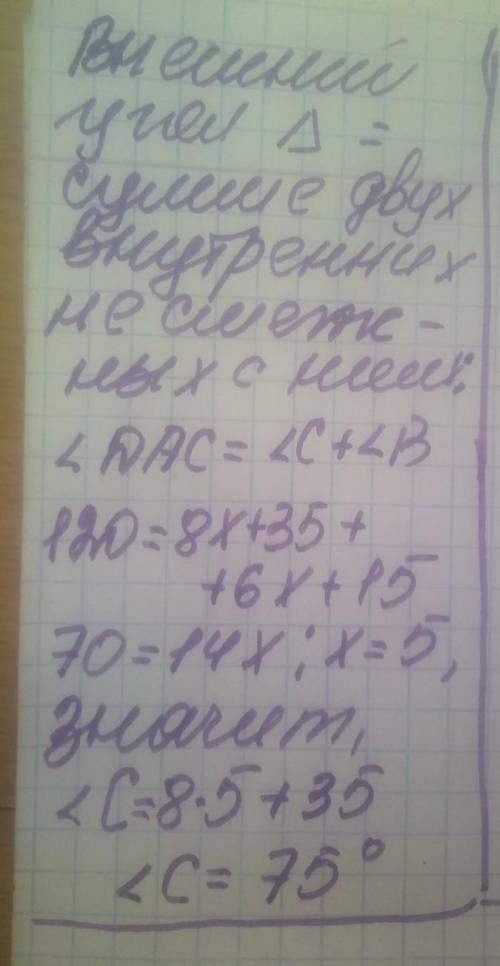 Внешний
угол Δ =
сумме двух
внутренних
не смеж-
ных с ним:
∠DAC = ∠C + ∠B
120 = 8x + 35 +
+ 6x + 15
70 = 14x; x = 5,
значит,
∠C = 8·5 + 35
∠C = 75°